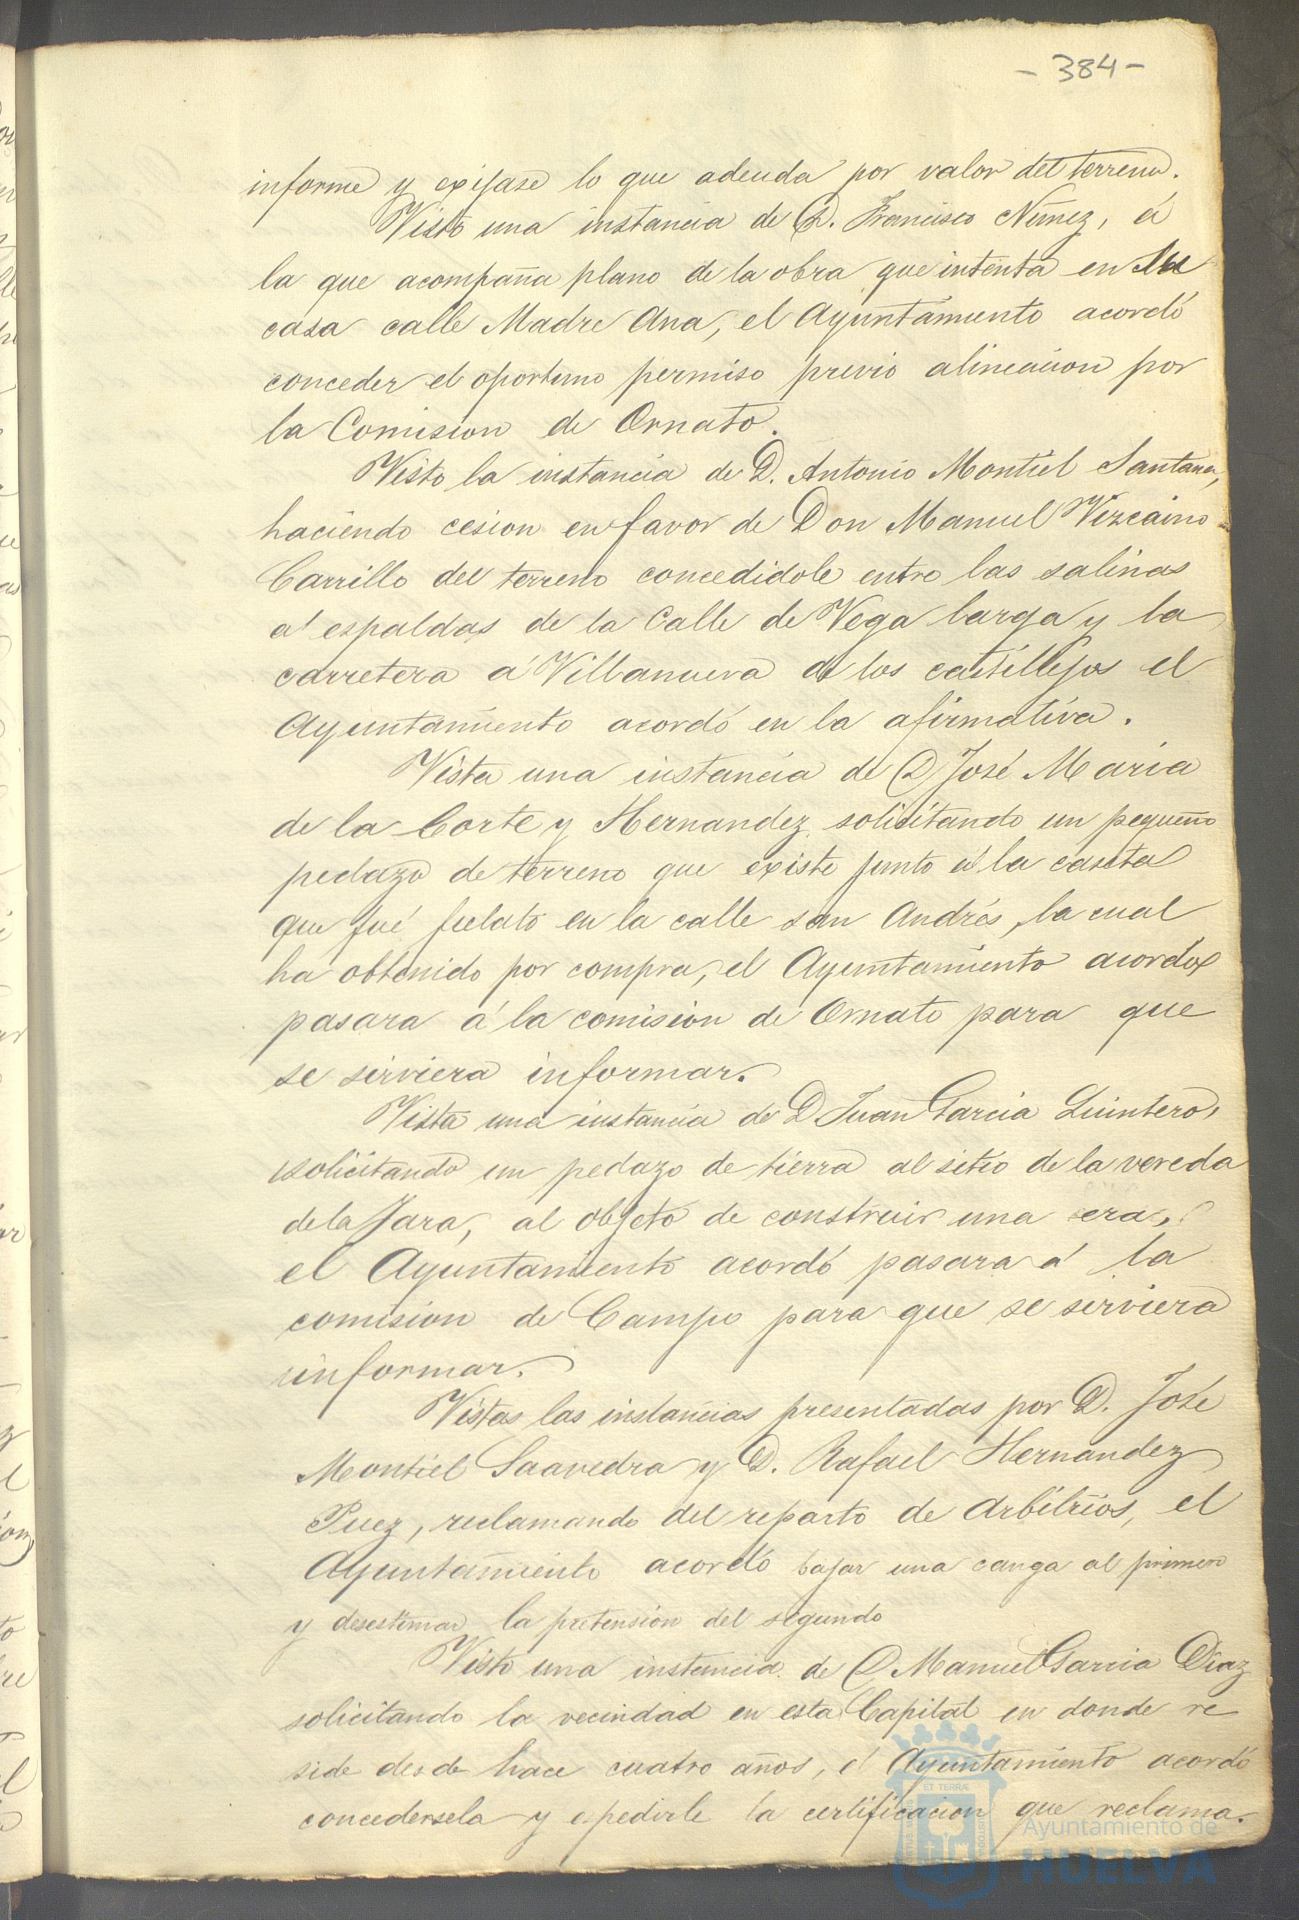 - 384 -
informe y exijase lo que adeuda por valor del terreno.
Visto una instancia de D. Francisco Nuñez, á
la que acompaña plano de la obra que intenta en su
casa calle Madre Ana, el Ayuntamiento acordó
conceder el oportuno permiso previo alineacion por
la Comision de Ornato.
Visto la instancia de D. Antonio Montiel Santana,
haciendo cesion en favor de Don Manuel Vizcaino
Carrillo del terreno concedidole entre las salinas
á espaldas de la Calle de Vega larga y la
carretera á Villanueva de los castillejos el
Ayuntamiento acordó en la afirmativa.
Vista una instancia de D José Maria
de la Corte y Hernandez solicitando un pequeño
pedazo de terreno que existe junto á la caseta
que fué fielato en la calle san Andrés, la cual
ha obtenido por compra, el Ayuntamiento acordó
pasara á la comision de Ornato para que
se sirviera informar.
Vista una instancia de D Juan Garcia Quintero,
solicitando un pedazo de tierra al sitio de la vereda
de la Jara, al objeto de construir una era,
el Ayuntamiento acordó pasara á la
comision de Campo para que se serviera
informar.
Vistas las instancias presentadas por D. José
Montiel Saavedra y D. Rafael Hernandez
Puez, reclamando del reparto de Arbitrios, el
Ayuntamiento acordó bajar una canga al primero
y desestimar la pretension del segundo
Visto una instancia de D Manuel Garcia Diaz
solicitando la vecindad en esta Capital en donde re
side desde hace cuatro años, el Ayuntamiento acordó
concedersela y espedirle la certificacion que reclama.
Ayuntamiento de
HUELVA